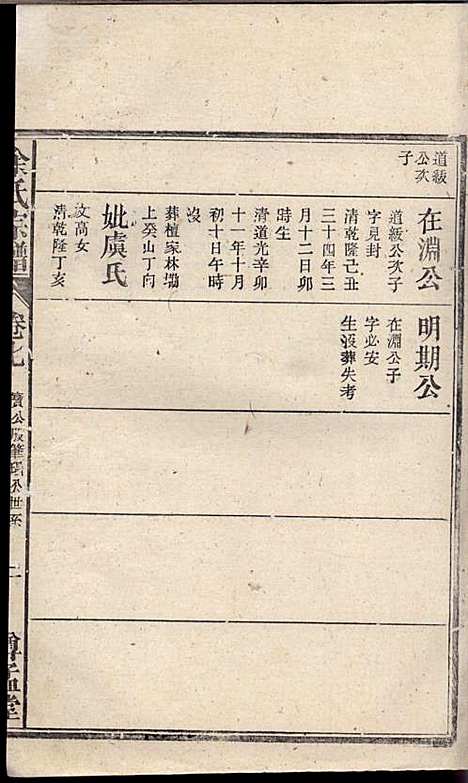 道級
公次
子
在淵公
道級公次子
字見封
清乾隆己丑
三十四年三
月十二日卯
時生
清道光辛卯
十一年十月
初十日午時
沒
葬檀家林塲
上癸山丁向
妣虞氏
文高女
清乾隆丁亥
明期公
在淵公子
字必安
生沒葬失考
余氏宗譜
卷七